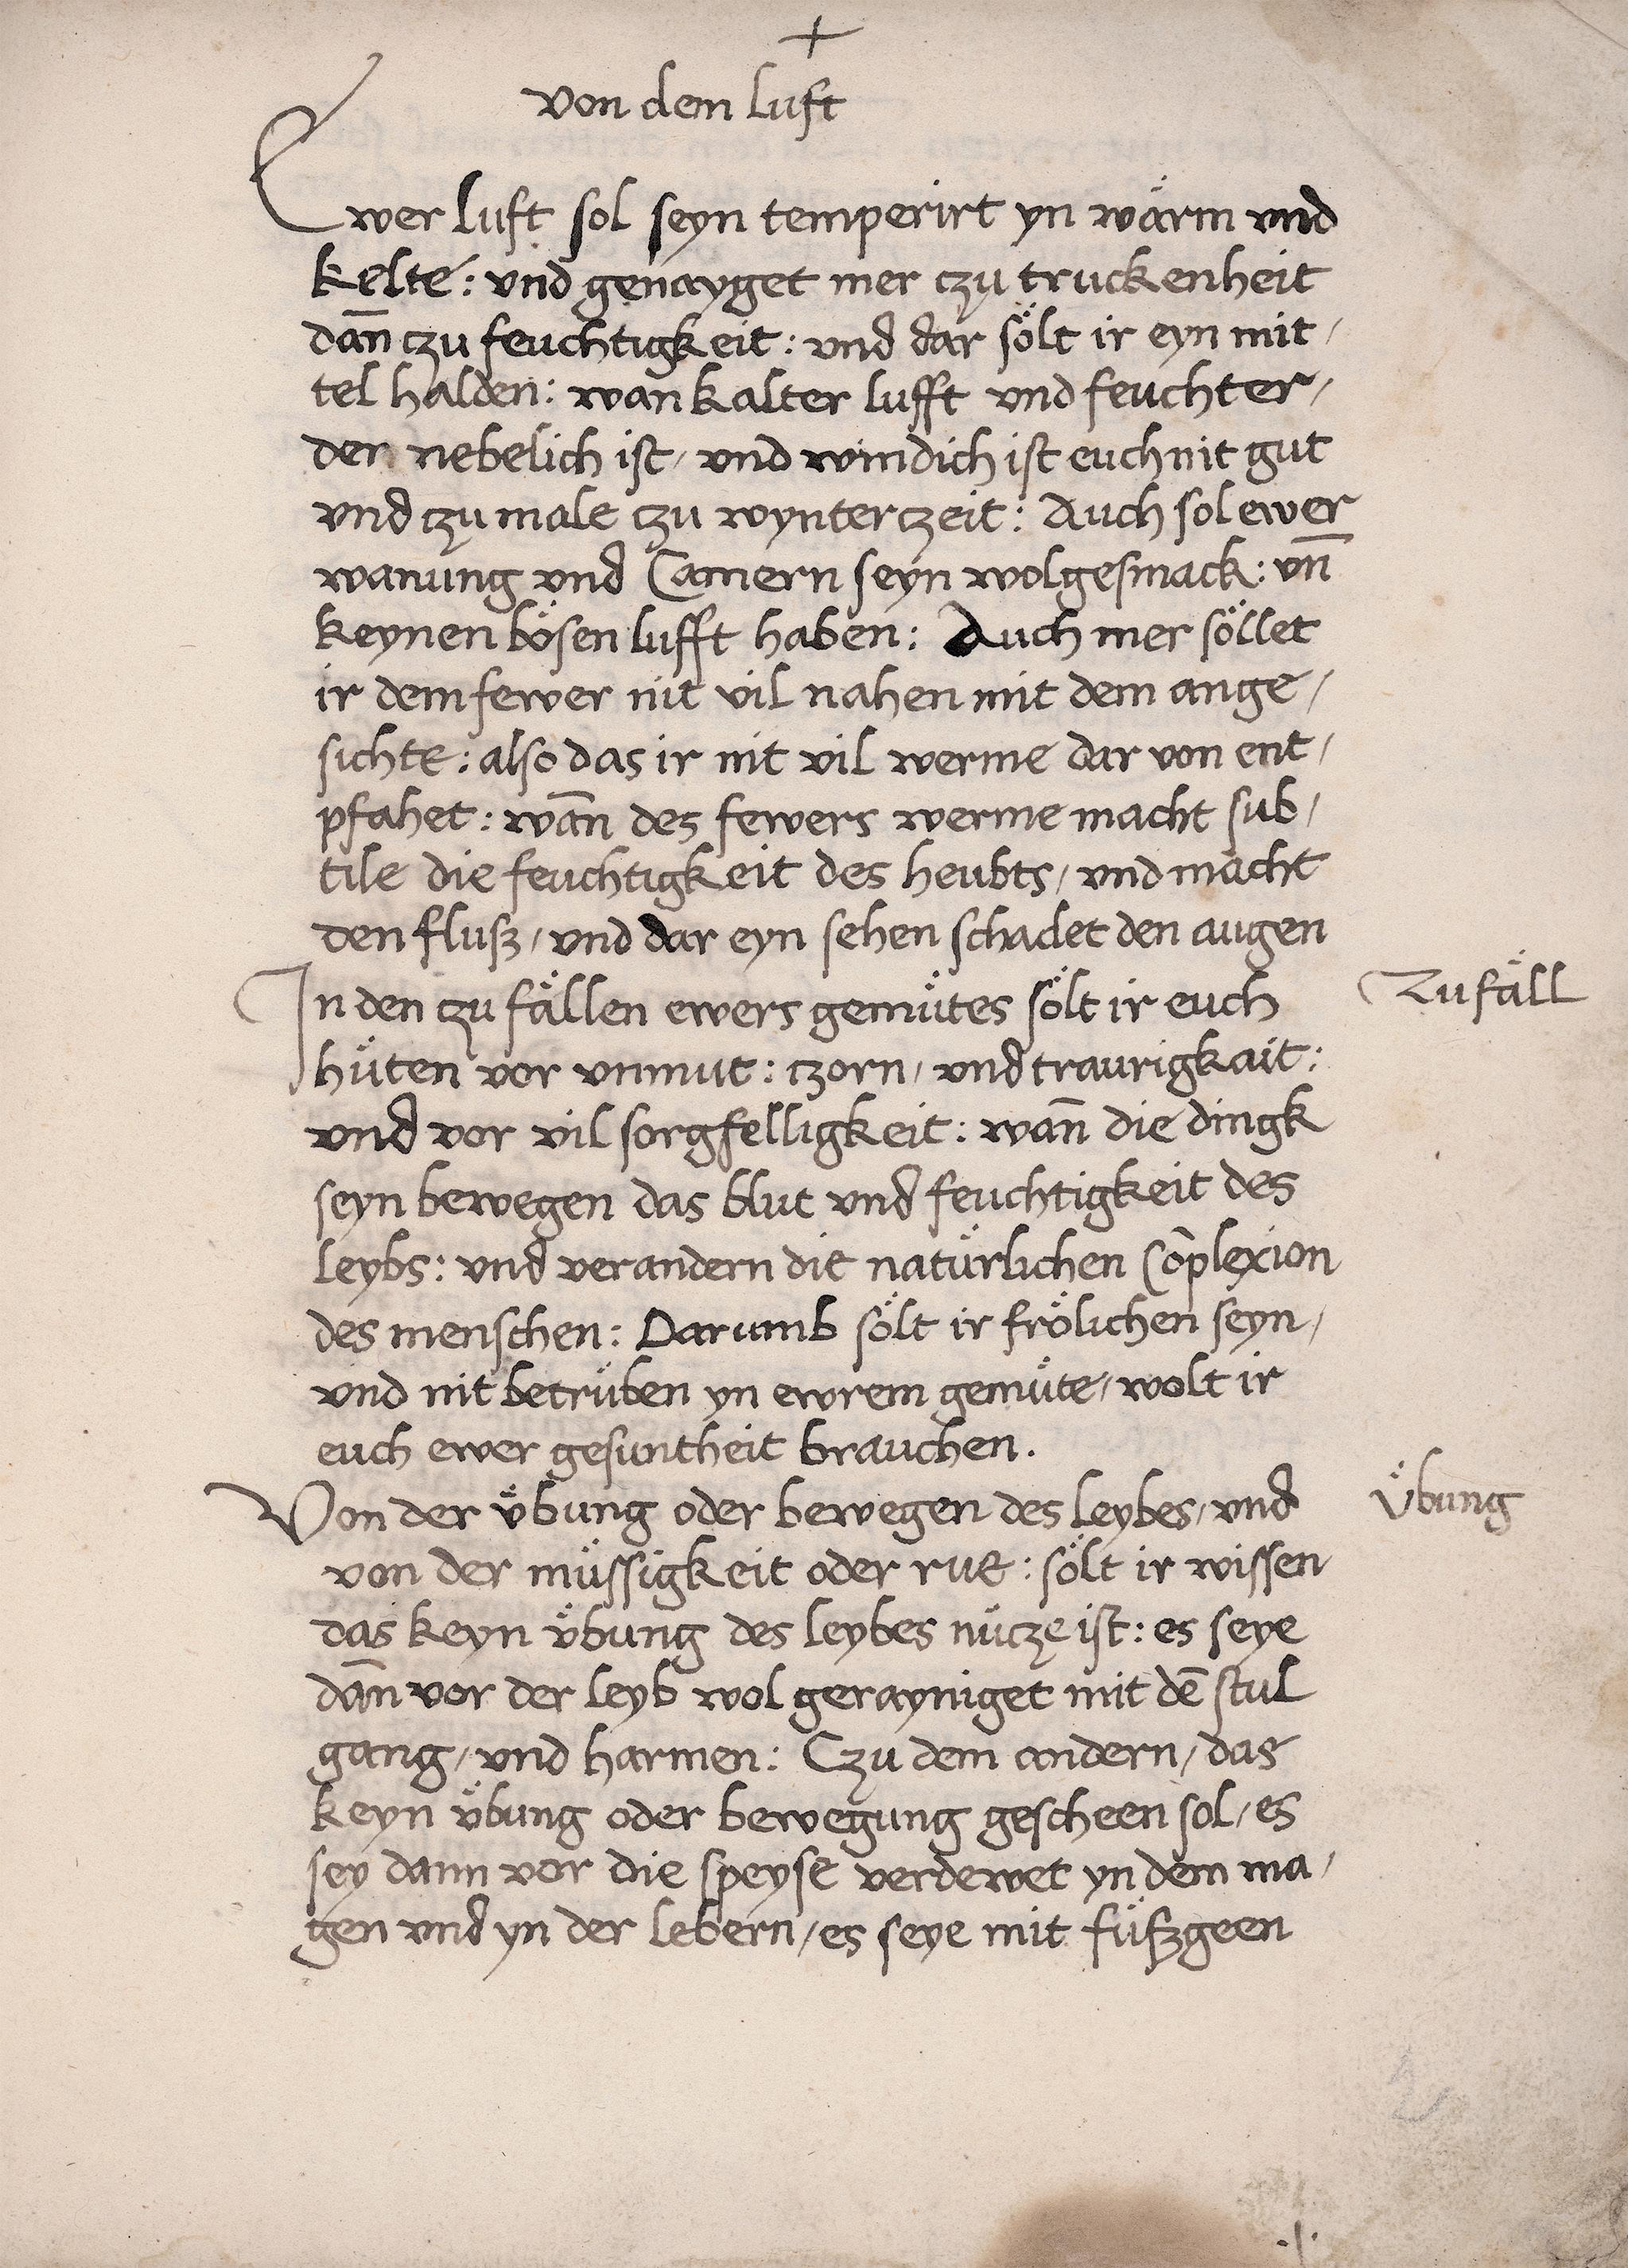 +
von dem luft
Ewer luft sol seyn temperirt yn wärm vnd
kelte: vnd genayget mer czu truckenheit
dañ czu feuchtigkeit: vnd dar sölt ir eyn mit/
tel halden: wan kalter lufft vnd feuchter/
der nebelich ist/ vnd windich ist euch nit gut
vnd czu male czu wynterczeit: Auch sol ewer
wanung vnd Camern seyn wolgesmack: vñ
keynen bösen lufft haben: Auch mer söllet
ir dem fewer nit vil nahen mit dem ange/
sichte: also das ir nit vil werme dar von ent/
pfahet: wañ des fewers werme macht sub/
tile die feuchtigkeit des heubts/ vnd macht
den fluß/ vnd dar eyn sehen schadet den augen
In den czufällen ewers gemütes sölt ir euch
Zufäll
hüten vor vnmut: czorn/ vnd traurigkait:
vnd vor vil sorgfelligkeit: wañ die dingk
seyn bewegen das blut vnd feuchtigkeit des
leybs: vnd verandern die natürlichen Cōplexion
des menschen: Darumb sölt ir frölichen seyn/
vnd nit betrüben yn ewrem gemüte/ wolt ir
euch ewer gesuntheit brauchen.
Von der v̈bung oder bewegen des leybes/ vnd
Übung
von der müssigkeit oder rue: sölt ir wissen
das keyn v̈bung des leybes nücze ist: es seye
dañ vor der leyb wol gerayniget mit dē stul
gang/ vnd harmen: Czu dem andern/ das
keyn v̈bung oder bewegung gescheen sol/ es
sey dann vor die speyse verdewet yn dem ma/
gen vnd yn der lebern/ es seye mit füßgeen